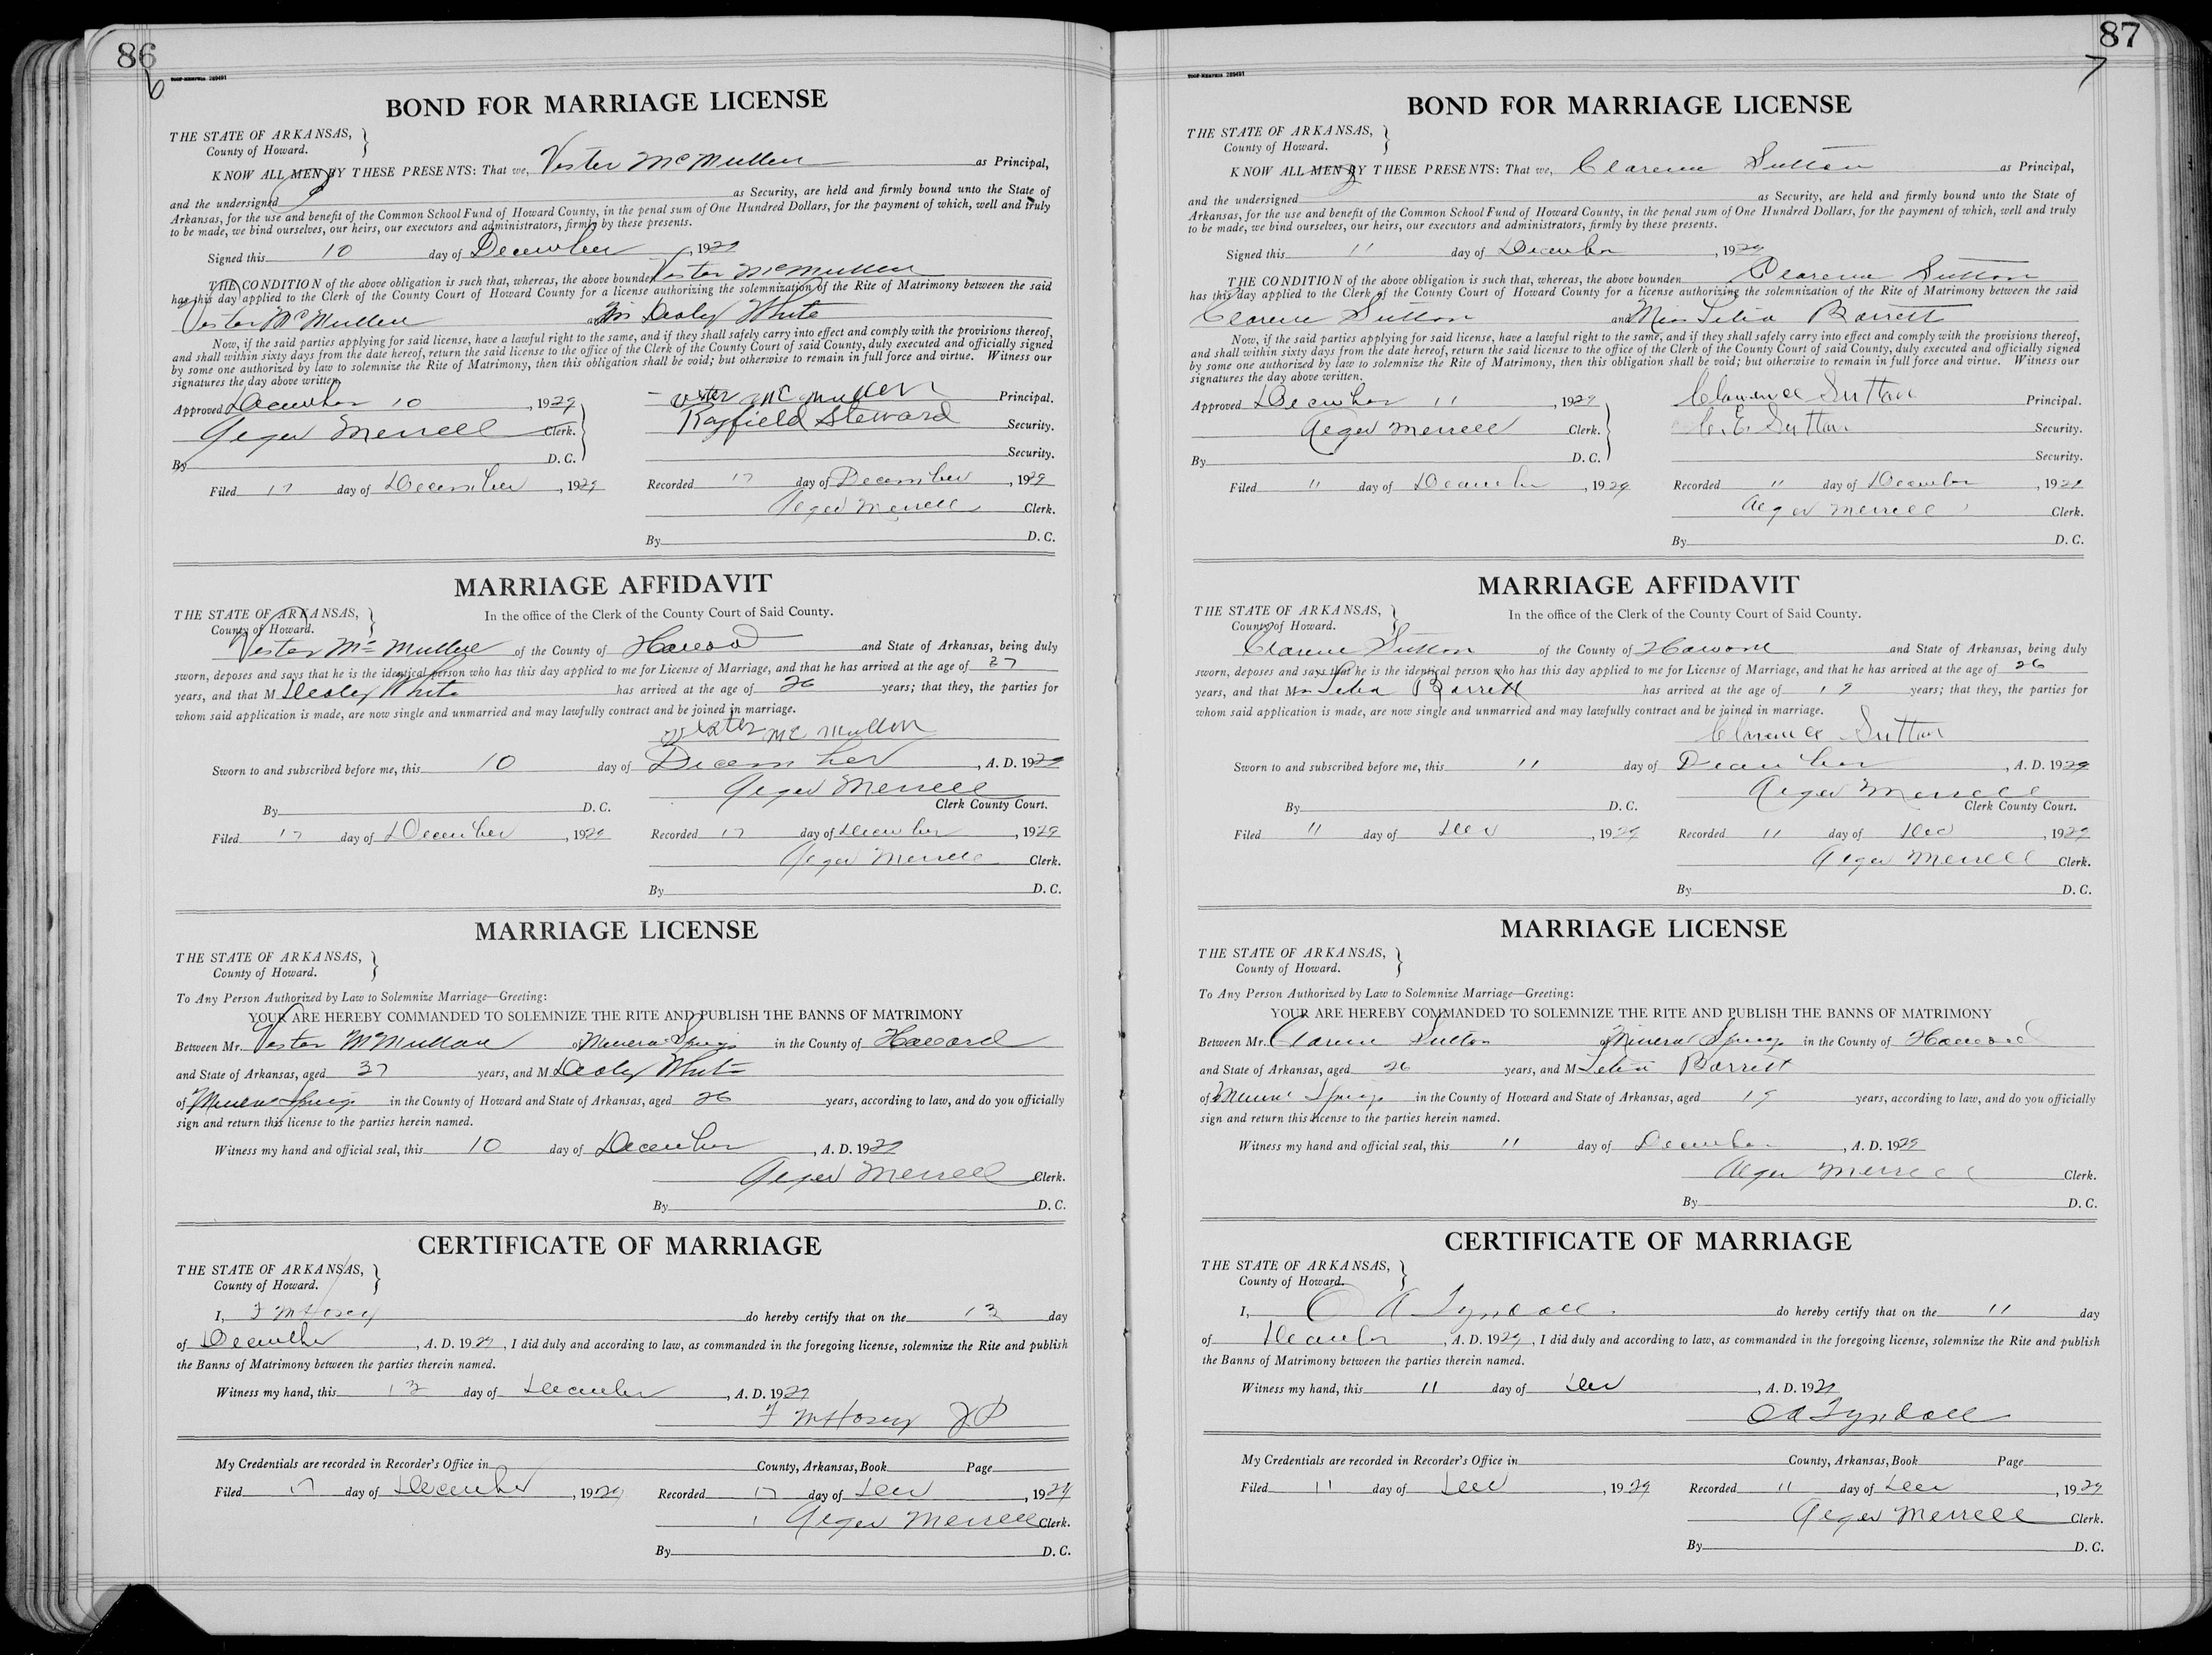 86
6
TOOF-MEMPHIS 269491
BOND FOR MARRIAGE LICENSE
THE STATE OF ARKANSAS,
County of Howard.
KNOW ALL MEN BY THESE PRESENTS: That we, Vester McMullen as Principal,
and the undersigned as Security, are held and firmly bound unto the State of
Arkansas, for the use and benefit of the Common School Fund of Howard County, in the penal sum of One Hundred Dollars, for the payment of which, well and truly
to be made, we bind ourselves, our heirs, our executors and administrators, firmly by these presents.
Signed this 10 day of December, 1929
THE CONDITION of the above obligation is such that, whereas, the above bounden Vester McMullen
has this day applied to the Clerk of the County Court of Howard County for a license authorizing the solemnization of the Rite of Matrimony between the said
Vester McMullen and White
Now, if the said parties applying for said license, have a lawful right to the same, and if they shall safely carry into effect and comply with the provisions thereof,
and shall within sixty days from the date hereof, return the said license to the office of the Clerk of the County Court of said County, duly executed and officially signed
by some one authorized by law to solemnize the Rite of Matrimony, then this obligation shall be void; but otherwise to remain in full force and virtue. Witness our
signatures the day above written.
Approved December 10, 1929 Vester McMullen Principal.
Alger Merrell Clerk. Rayfield Steward Security.
By D. C. Security.
Filed 17 day of December, 1929 Recorded 17 day of December, 1929
Alger Merrell Clerk.
By D. C.
MARRIAGE AFFIDAVIT
THE STATE OF ARKANSAS,
County of Howard.
In the office of the Clerk of the County Court of Said County.
Vester McMullen of the County of Howard and State of Arkansas, being duly
sworn, deposes and says that he is the identical person who has this day applied to me for License of Marriage, and that he has arrived at the age of 27
years, and that M White has arrived at the age of 26 years; that they, the parties for
whom said application is made, are now single and unmarried and may lawfully contract and be joined in marriage.
Vester McMullen
Sworn to and subscribed before me, this 10 day of December, A. D. 1929
Alger Merrell
By D. C. Clerk County Court.
Filed 17 day of December, 1929 Recorded 17 day of December, 1929
Alger Merrell Clerk.
By D. C.
MARRIAGE LICENSE
THE STATE OF ARKANSAS,
County of Howard.
To Any Person Authorized by Law to Solemnize Marriage—Greeting:
YOUR ARE HEREBY COMMANDED TO SOLEMNIZE THE RITE AND PUBLISH THE BANNS OF MATRIMONY
Between Mr. Vester McMullen of Mineral Springs in the County of Howard
and State of Arkansas, aged 27 years, and M White
of Mineral Springs in the County of Howard and State of Arkansas, aged 26 years, according to law, and do you officially
sign and return this license to the parties herein named.
Witness my hand and official seal, this 10 day of December, A. D. 1929
Alger Merrell Clerk.
By D. C.
CERTIFICATE OF MARRIAGE
THE STATE OF ARKANSAS,
County of Howard.
I, F M Hosey do hereby certify that on the 13 day
of December, A. D. 1929, I did duly and according to law, as commanded in the foregoing license, solemnize the Rite and publish
the Banns of Matrimony between the parties therein named.
Witness my hand, this 13 day of December, A. D. 1929
F M Hosey JP
My Credentials are recorded in Recorder's Office in County, Arkansas, Book Page
Filed 17 day of December, 1929 Recorded 17 day of Dec, 1929
Alger Merrell Clerk.
By D. C.
87
7
TOOF-MEMPHIS 269491
BOND FOR MARRIAGE LICENSE
THE STATE OF ARKANSAS,
County of Howard.
KNOW ALL MEN BY THESE PRESENTS: That we, Clarence Sutton as Principal,
and the undersigned as Security, are held and firmly bound unto the State of
Arkansas, for the use and benefit of the Common School Fund of Howard County, in the penal sum of One Hundred Dollars, for the payment of which, well and truly
to be made, we bind ourselves, our heirs, our executors and administrators, firmly by these presents.
Signed this 11 day of December, 1929
THE CONDITION of the above obligation is such that, whereas, the above bounden Clarence Sutton
has this day applied to the Clerk of the County Court of Howard County for a license authorizing the solemnization of the Rite of Matrimony between the said
Clarence Sutton and Miss Lelia Barrett
Now, if the said parties applying for said license, have a lawful right to the same, and if they shall safely carry into effect and comply with the provisions thereof,
and shall within sixty days from the date hereof, return the said license to the office of the Clerk of the County Court of said County, duly executed and officially signed
by some one authorized by law to solemnize the Rite of Matrimony, then this obligation shall be void; but otherwise to remain in full force and virtue. Witness our
signatures the day above written.
Approved December 11, 1929 Clarence Sutton Principal.
Alger Merrell Clerk. C. E. Sutton Security.
By D. C. Security.
Filed 11 day of December, 1929 Recorded 11 day of December, 1929
Alger Merrell Clerk.
By D. C.
MARRIAGE AFFIDAVIT
THE STATE OF ARKANSAS,
County of Howard.
In the office of the Clerk of the County Court of Said County.
Clarence Sutton of the County of Howard and State of Arkansas, being duly
sworn, deposes and says that he is the identical person who has this day applied to me for License of Marriage, and that he has arrived at the age of 26
years, and that Miss Lelia Barrett has arrived at the age of 19 years; that they, the parties for
whom said application is made, are now single and unmarried and may lawfully contract and be joined in marriage.
Clarence Sutton
Sworn to and subscribed before me, this 11 day of December, A. D. 1929
Alger Merrell
By D. C. Clerk County Court.
Filed 11 day of Dec, 1929 Recorded 11 day of Dec, 1929
Alger Merrell Clerk.
By D. C.
MARRIAGE LICENSE
THE STATE OF ARKANSAS,
County of Howard.
To Any Person Authorized by Law to Solemnize Marriage—Greeting:
YOUR ARE HEREBY COMMANDED TO SOLEMNIZE THE RITE AND PUBLISH THE BANNS OF MATRIMONY
Between Mr. Clarence Sutton of Mineral Springs in the County of Howard
and State of Arkansas, aged 26 years, and M Lelia Barrett
of Mineral Springs in the County of Howard and State of Arkansas, aged 19 years, according to law, and do you officially
sign and return this license to the parties herein named.
Witness my hand and official seal, this 11 day of December, A. D. 1929
Alger Merrell Clerk.
By D. C.
CERTIFICATE OF MARRIAGE
THE STATE OF ARKANSAS,
County of Howard.
I, O A Tyndall do hereby certify that on the 11 day
of December, A. D. 1929, I did duly and according to law, as commanded in the foregoing license, solemnize the Rite and publish
the Banns of Matrimony between the parties therein named.
Witness my hand, this 11 day of Dec, A. D. 1929
O A Tyndall
My Credentials are recorded in Recorder's Office in County, Arkansas, Book Page
Filed 11 day of Dec, 1929 Recorded 11 day of Dec, 1929
Alger Merrell Clerk.
By D. C.